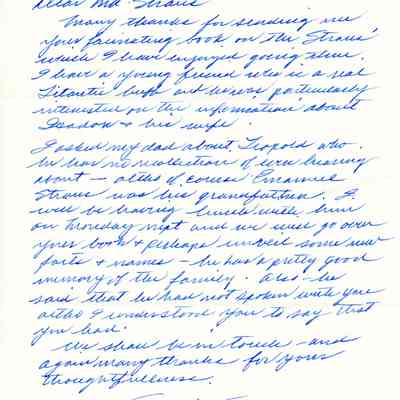 Dear Mr. Straus
Many thanks for sending me
your fascinating book on the Straus'
which I have enjoyed going thru.
I have a young friend who is a real
Titanic buff and was particularly
interested in the information about
Isadore + his wife.
I asked my dad about Leopold who
he has no recollection of ever hearing
about — altho of course Emanuel
Straus was his grandfather. I
will be having lunch with him
on Monday next and we will go over
your book + perhaps unveil some new
facts + names - he has a pretty good
memory of the family. Also - he
said that he had not spoken with you
altho I understood you to say that
you had.
We shall be in touch - and
again many thanks for your
thoughtfulness.